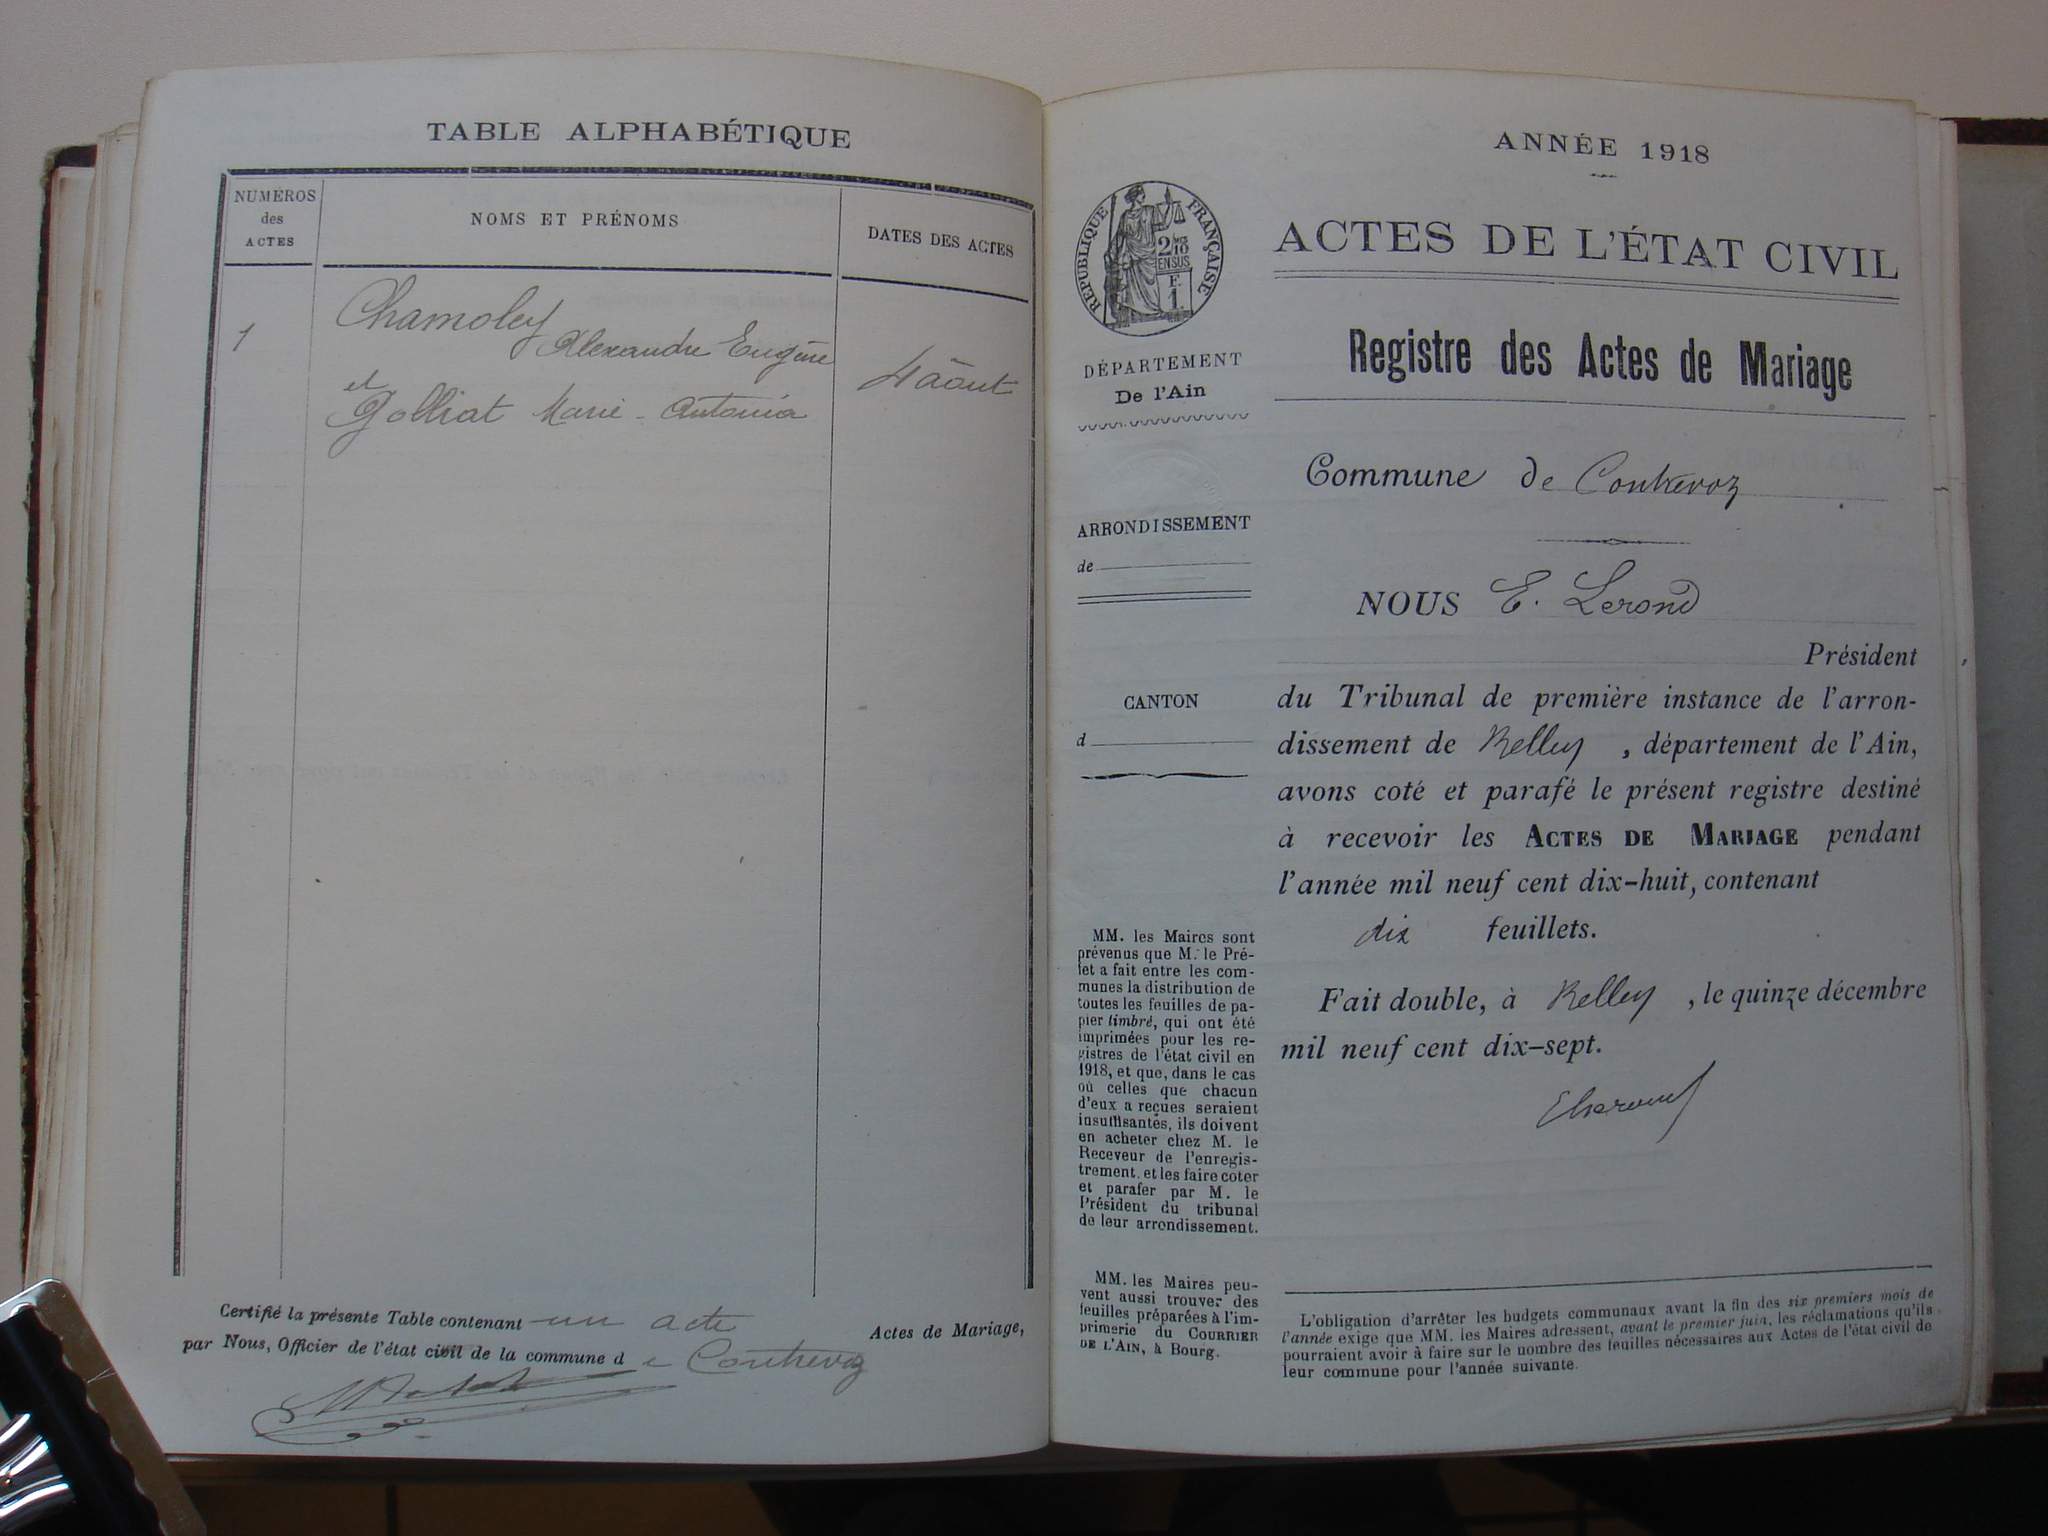 TABLE ALPHABÉTIQUE
NUMÉROS
des
ACTES
NOMS ET PRÉNOMS
DATES DES ACTES
1
Chamoley
Alexandre Eugène
4 août
et
Golliat Marie-Antonia
Certifié la présente Table contenant un acte
Actes de Mariage,
par Nous, Officier de l'état civil de la commune de Contrevoz
ANNÉE 1918
RÉPUBLIQUE FRANÇAISE
2/10
EN SUS
F.
1.
ACTES DE L'ÉTAT CIVIL
Registre des Actes de Mariage
DÉPARTEMENT
De l'Ain
Commune de Contrevoz
ARRONDISSEMENT
de
NOUS E. Lerond
Président
CANTON
d
du Tribunal de première instance de l'arron-
dissement de Belley, département de l'Ain,
avons coté et parafé le présent registre destiné
à recevoir les ACTES DE MARIAGE pendant
l'année mil neuf cent dix-huit, contenant
dix feuillets.
Fait double, à Belley, le quinze décembre
mil neuf cent dix-sept.
MM. les Maires sont
prévenus que M. le Pré-
fet a fait entre les com-
munes la distribution de
toutes les feuilles de pa-
pier timbré, qui ont été
imprimées pour les re-
gistres de l'état civil en
1918, et que, dans le cas
où celles que chacun
d'eux a reçues seraient
insuffisantes, ils doivent
en acheter chez M. le
Receveur de l'enregis-
trement, et les faire coter
et parafer par M. le
Président du tribunal
de leur arrondissement.
MM. les Maires peu-
vent aussi trouver des
feuilles préparées à l'im-
primerie du COURRIER
DE L'AIN, à Bourg.
L'obligation d'arrêter les budgets communaux avant la fin des six premiers mois de
l'année exige que MM. les Maires adressent, avant le premier juin, les réclamations qu'ils
pourraient avoir à faire sur le nombre des feuilles nécessaires aux Actes de l'état civil de
leur commune pour l'année suivante.